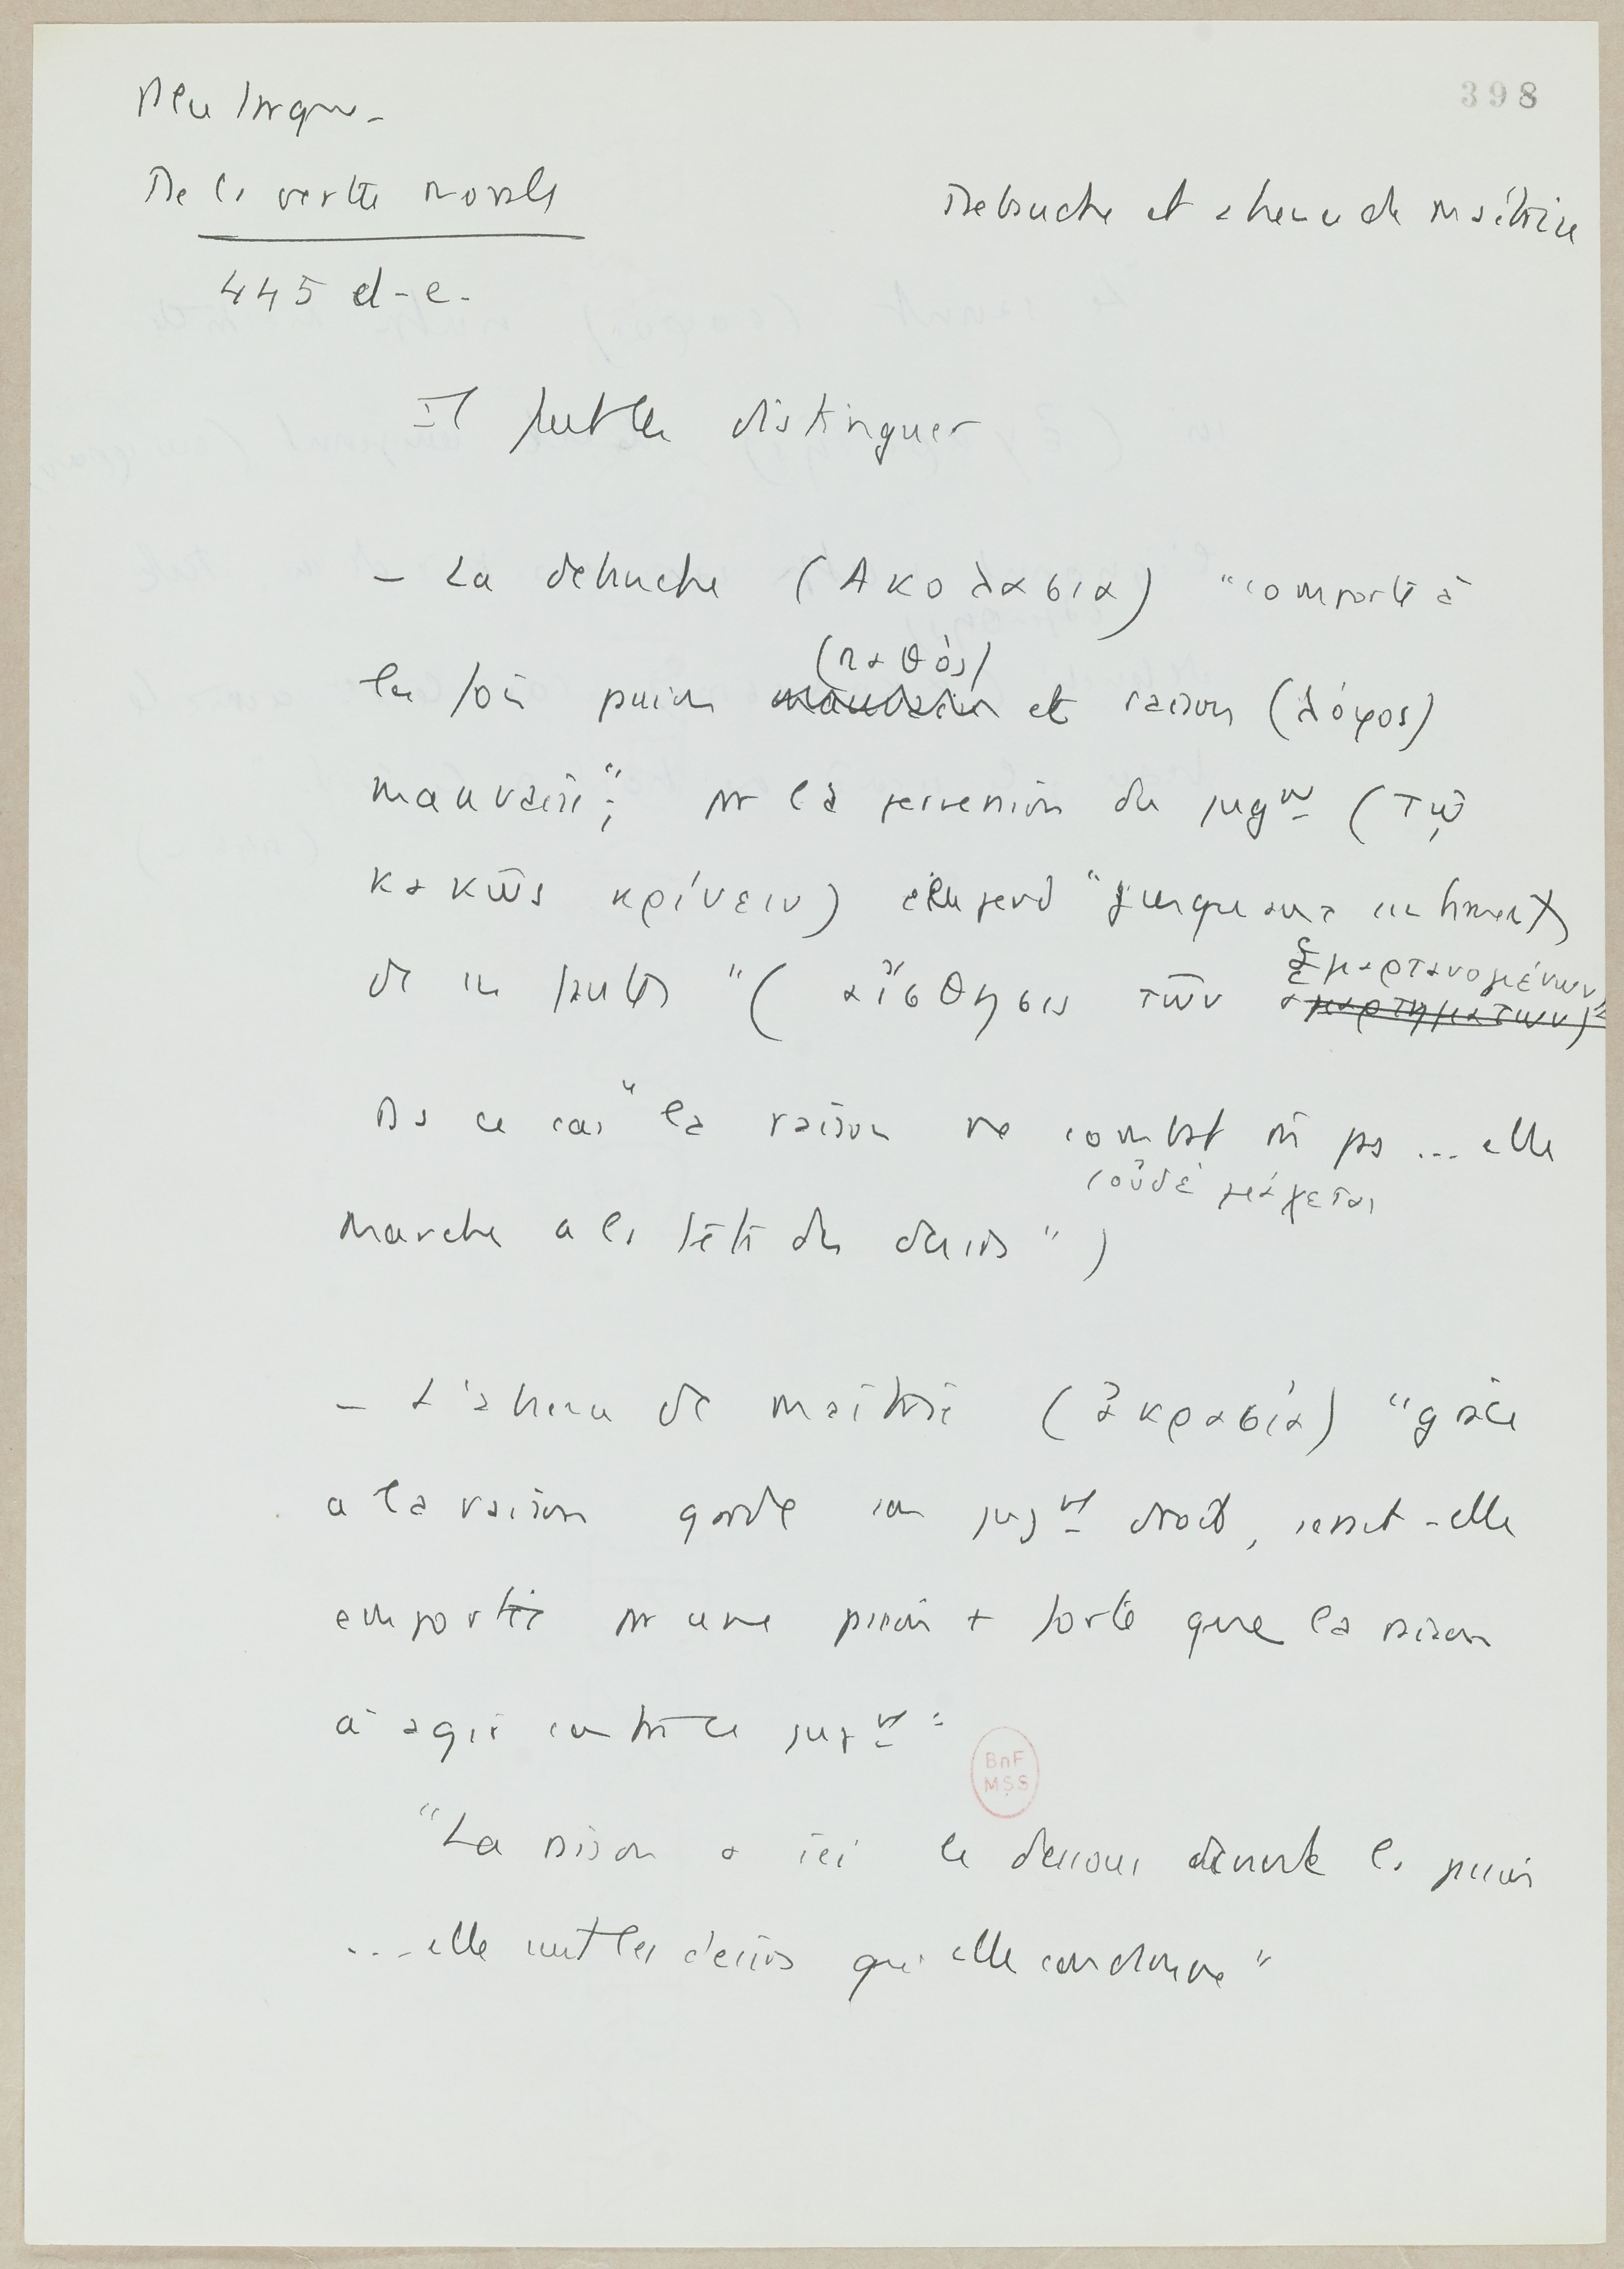 398
Plutarque -
De la vertu morale
Debauche et absence de maîtrise
445 d-e.
Il faut les distinguer
- La debauche (Ακολασια) "comporte à
(παθός)
la fois passion mauvaise et raison (λόγος)
mauvaise"; par la perversion du jugnt (τῷ
κακῶς κρίνειν) elle perd "jusqu'au sentiment
ἁμαρτανομένων
de ses fautes" (αἴσθησις τῶν αμαρτηματων)"
Ds ce cas "la raison ne combat pas ... elle
(οὐδὲ μάχεται
marche a la tête des desirs")
- L'absence de maîtrise (ἀκρασία) "grâce
a la raison garde son jugnt droit, serait-elle
emportée par une passion + forte que la raison
à agir contre ce jugnt"
"La raison a ici le dessous devant la passion
... elle suit les désirs qu'elle condamne"
BnF
MSS